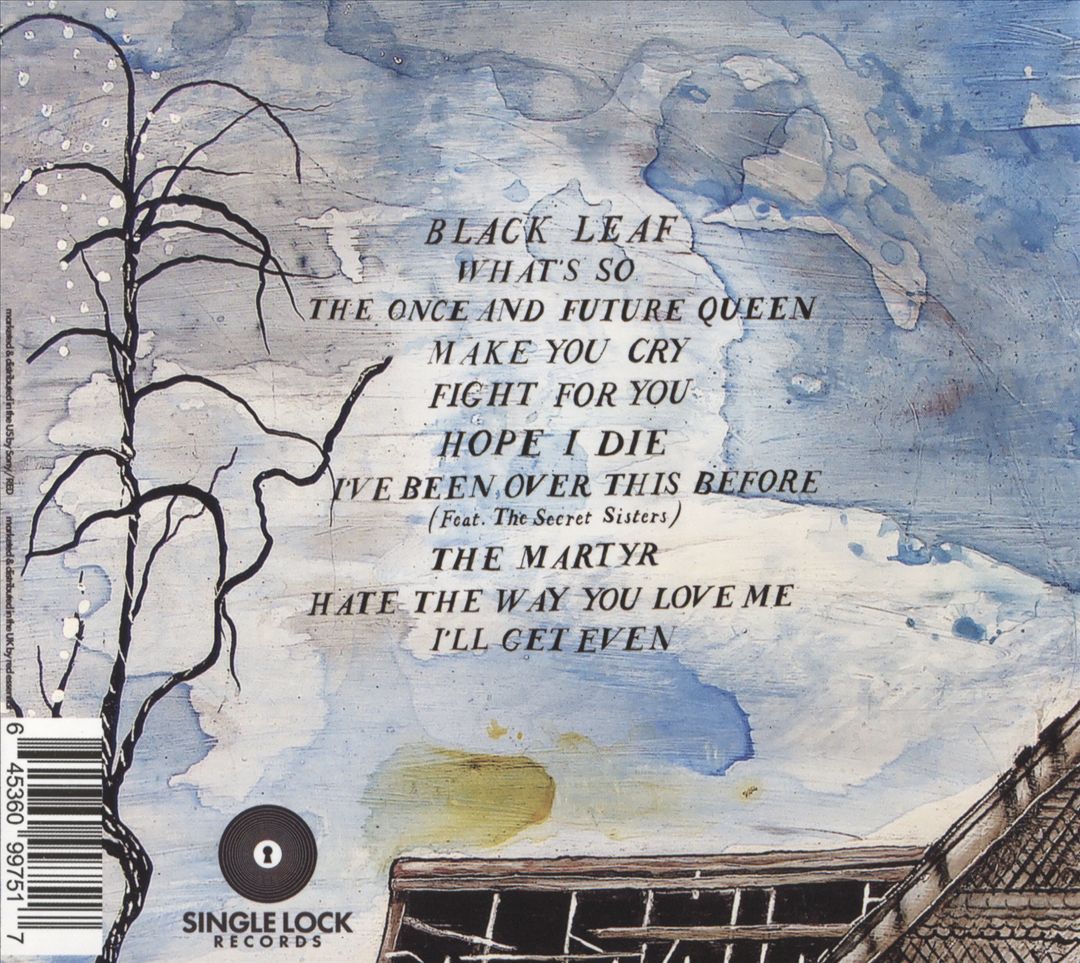 BLACK LEAF
WHAT'S SO
THE ONCE AND FUTURE QUEEN
MAKE YOU CRY
FIGHT FOR YOU
HOPE I DIE
I'VE BEEN OVER THIS BEFORE
(Feat. The Secret Sisters)
THE MARTYR
HATE THE WAY YOU LOVE ME
I'LL GET EVEN
marketed & distributed in the US by Sony / RED
marketed & distributed in the UK by red essential
6 45360 99751 7
SINGLE LOCK
RECORDS